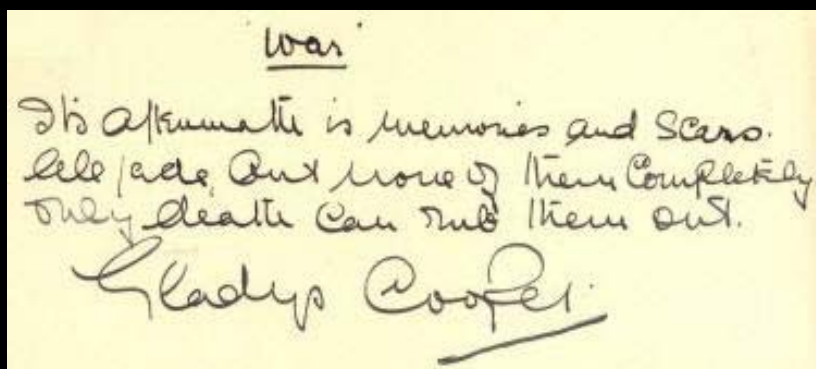 War
Its aftermath is memories and scars.
All fade, But none of them Completely
Only death Can rub them out.
Gladys Cooper.